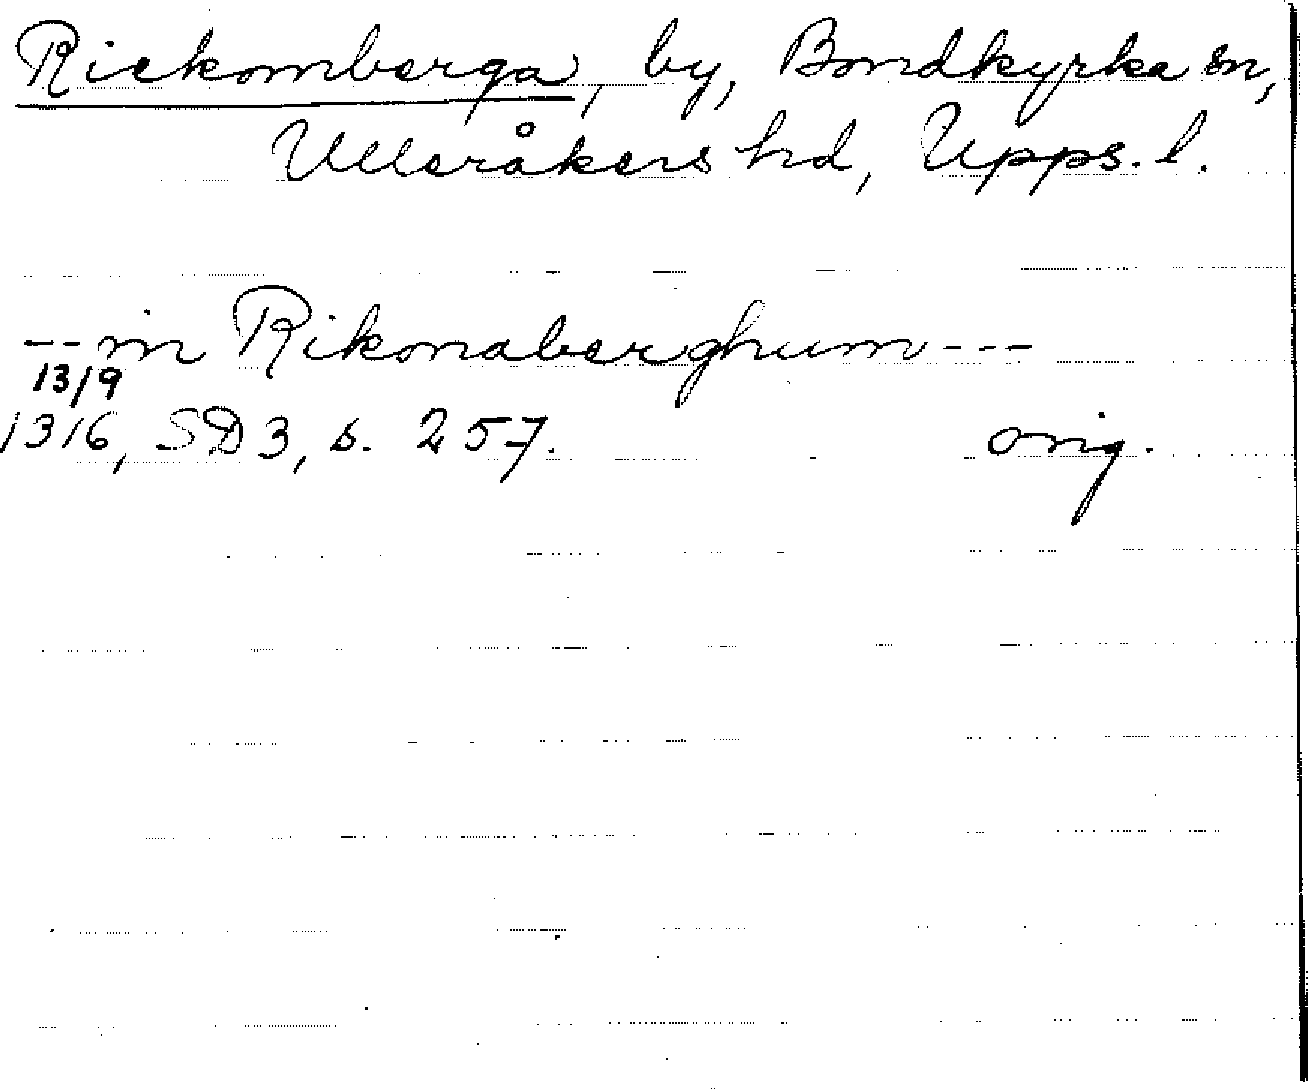 Rickomberga, by, Bondkyrka sn,
Ulleråkers hd, Upps. l.
-- in Rikonaberghum ---
13/9
1316, SD 3, s. 257. orig.